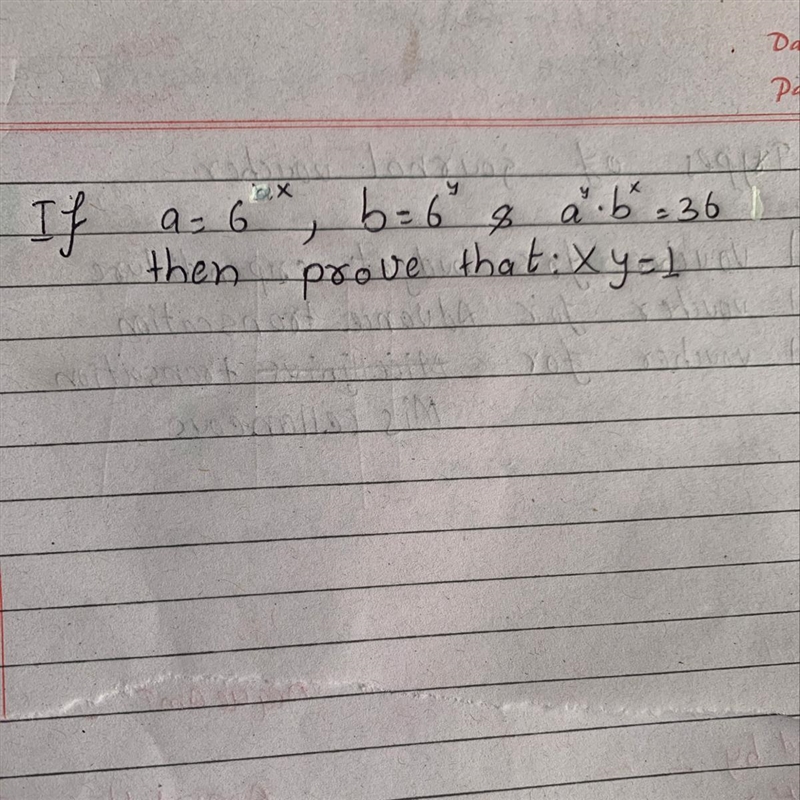 Da
Pa
If a = 6^x, b = 6^y & a^y · b^x = 36
then prove that: x y = 1